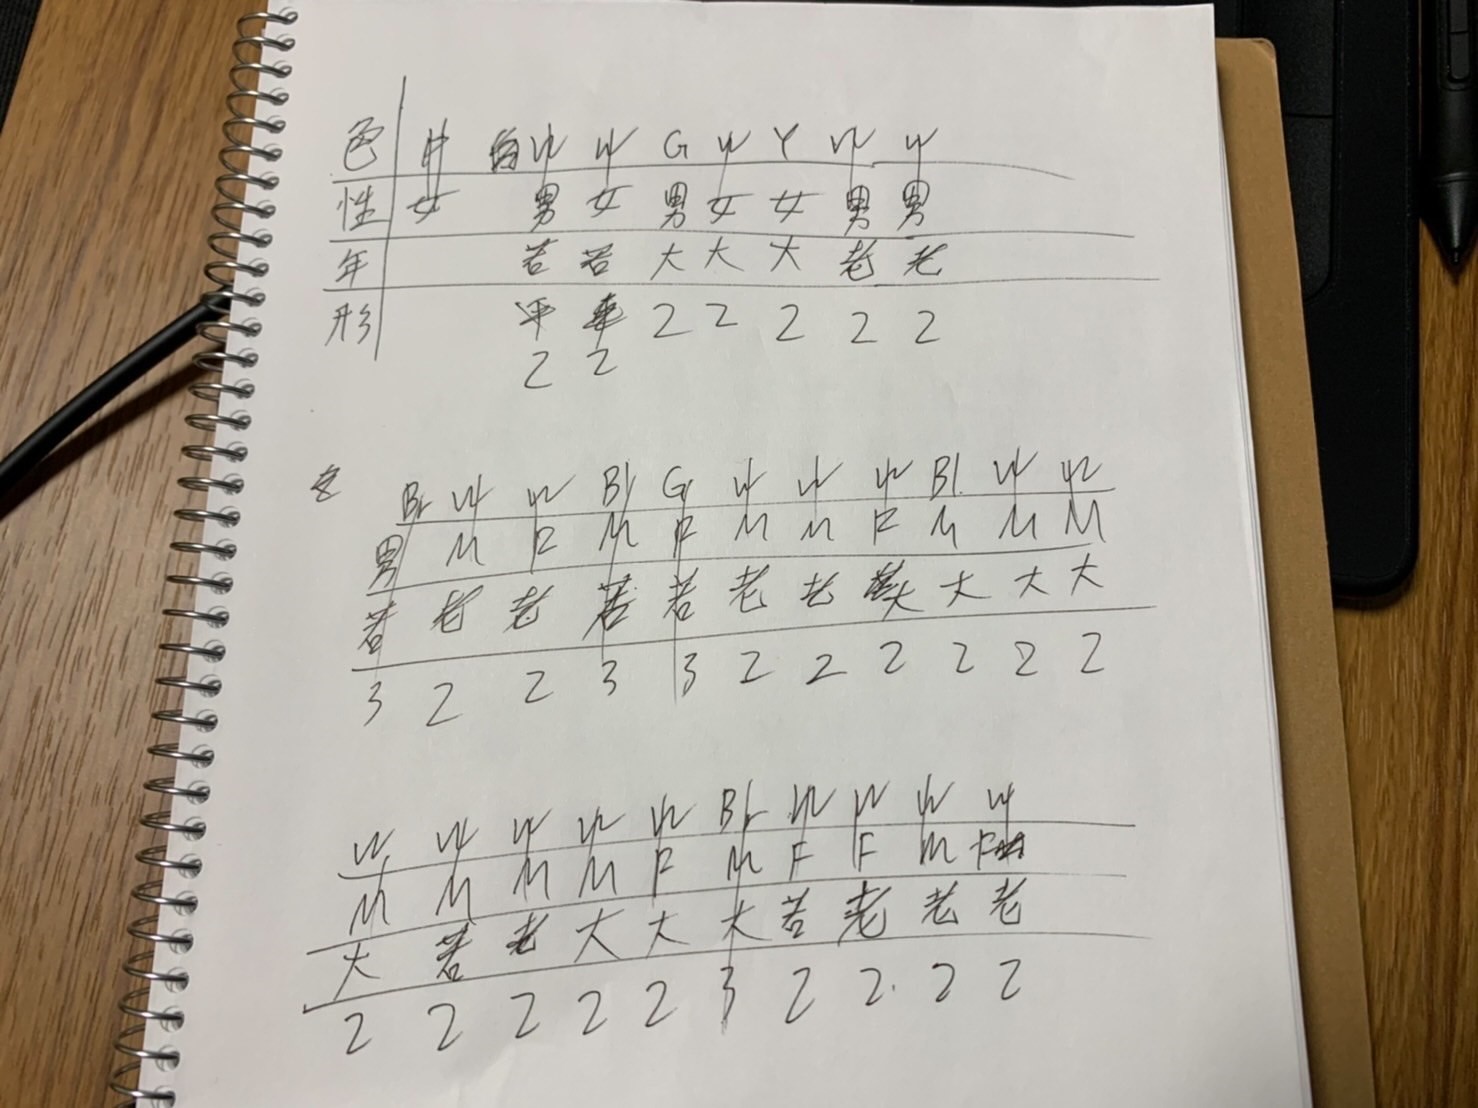 色 W W G W Y W W
性 女 男 女 男 女 女 男 男
年 若 若 大 大 大 老 老
形 2 2 2 2 2
2 2
Br W W Bl G W W W Bl W W
男 M F M F M M F M M M
若 老 老 若 若 老 老 大 大 大 大
3 2 2 3 3 2 2 2 2 2 2
W W W W W Br W W W W
M M M M F M F F M F
大 若 老 大 大 大 若 老 老 老
2 2 2 2 2 3 2 2 2 2